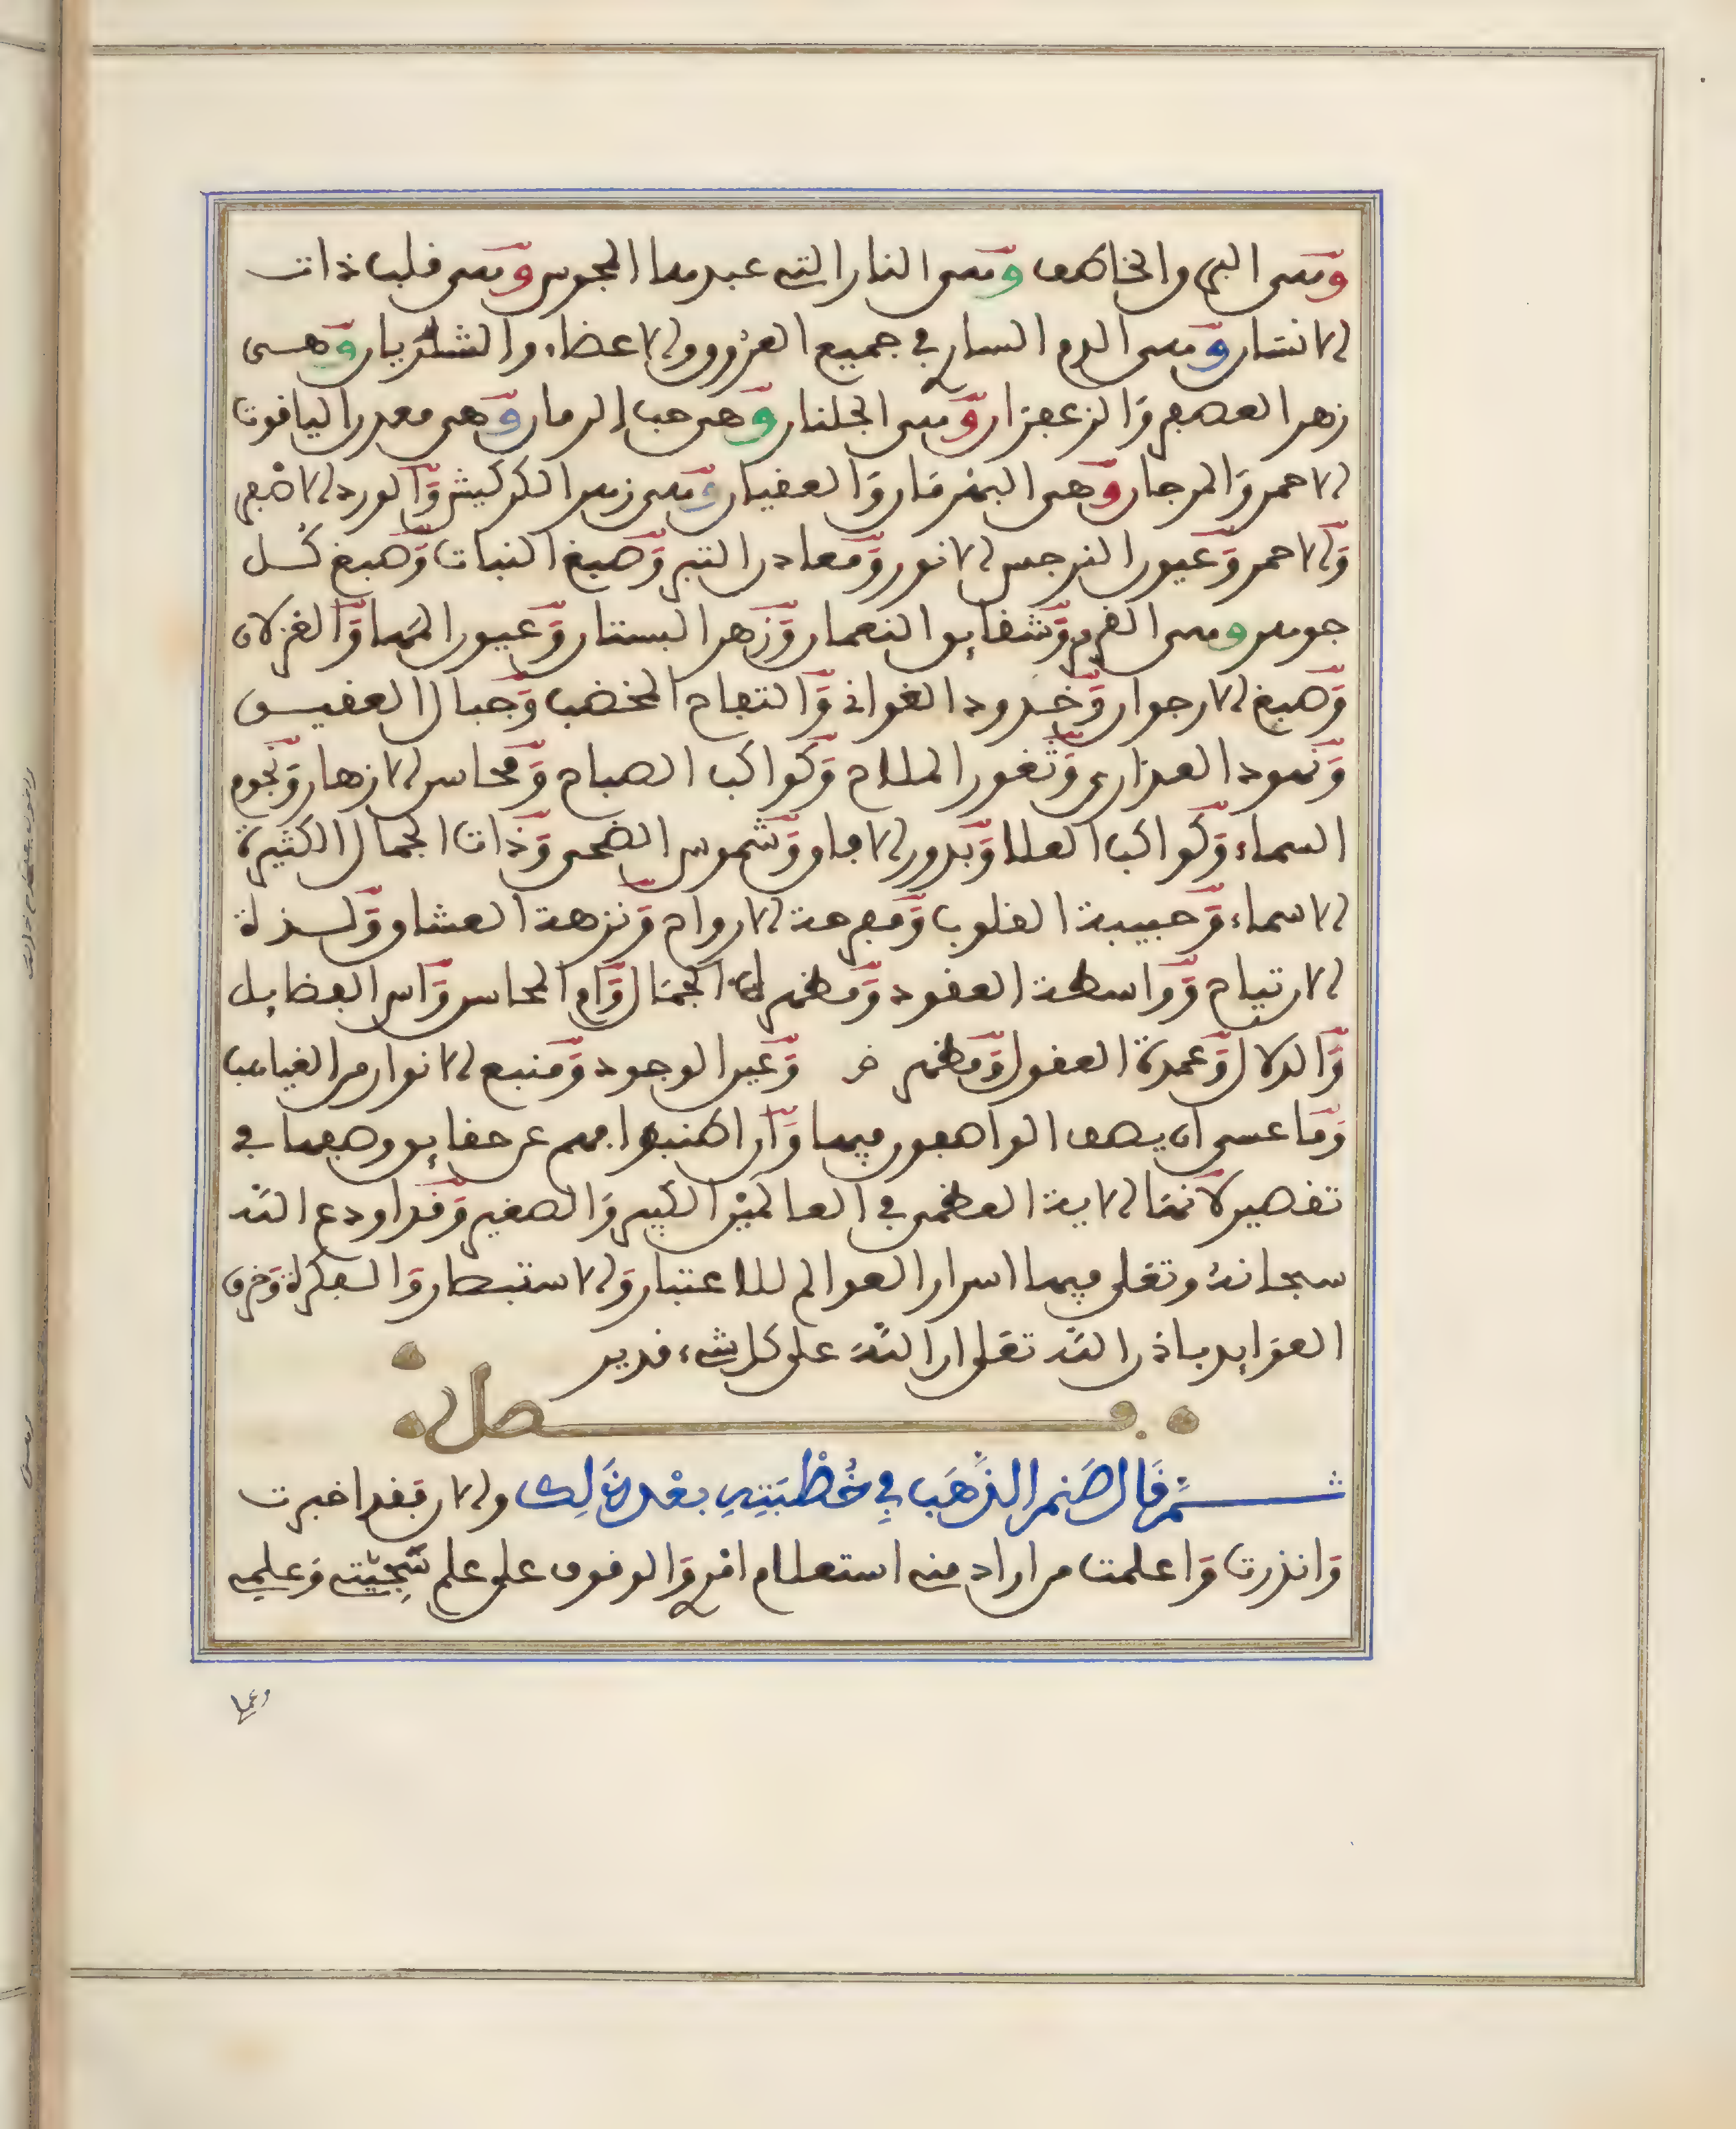 وهى البرق والخاطف وهى النار التى عبدها المجوس وهى قلب ذات
الانسان وهى الدم السار فى جميع العروق والاعضاء والشريان وهى
زهر العصفر وَالزعفران وهى الجلنار وَهى حب الرمان وَهى معدن الياقوت
الاحمر وَالمرجان وَهى البهرمان وَالعقيان وهى زهر الكركيش وَالورد الاصفر
وَالاحمر وَعيون النرجس الانور وَمعادن التبر وَصبغ النبات وَصبغ كُل
جوهر وهى القرمز وَشقايق النعمان وَزهر البستان وَعيون المها وَالغزلان
وَصبغ الارجوان وَخدود الغوانى وَالتفاح المخضب وَجبال العقيق
وَنهود العذارى وَثغور الملاح وَكواكب الصباح وَمحاسن الازهار وَنجوم
السماء وَكواكب العلا وَبدور الافاق وَشموس الضحى وَذات الجمال الكثيرة
الاسماء وَحبيبة القلوب وَمفرحة الارواح وَنزهة العشاق وَلذة
الارتياح وَواسطة العقود وَمظهر الجمال وَام المحاسن وَاس الفضايل
وَالدلال وَعمدة العقول وَمظهر وَعين الوجود وَمنبع الانوار من الغياهب
وَما عسى ان يصف الواصفون فيها وَان اطنبوا فهم عن حقايق وصفها فى
تقصير لانها الاية العظمى فى العالمين الكبير وَالصغير وَقد اودع الله
سبحانه وتعلى فيها اسرار العوالم للاعتبار وَالاستبصار وَالفكرة وَخرق
العوايد باذن الله تعلى ان الله على كل شىء قدير
فصل
ثم قَال صَنم الذَّهَب فِى خُطْبَتِهِ بعْد ذَلِك والان فقد اخبرت
وَانذرت وَاعلمت من اراد منه استعلام امره وَالوقوف على علم سَجِيّته وَعلمه
وعما